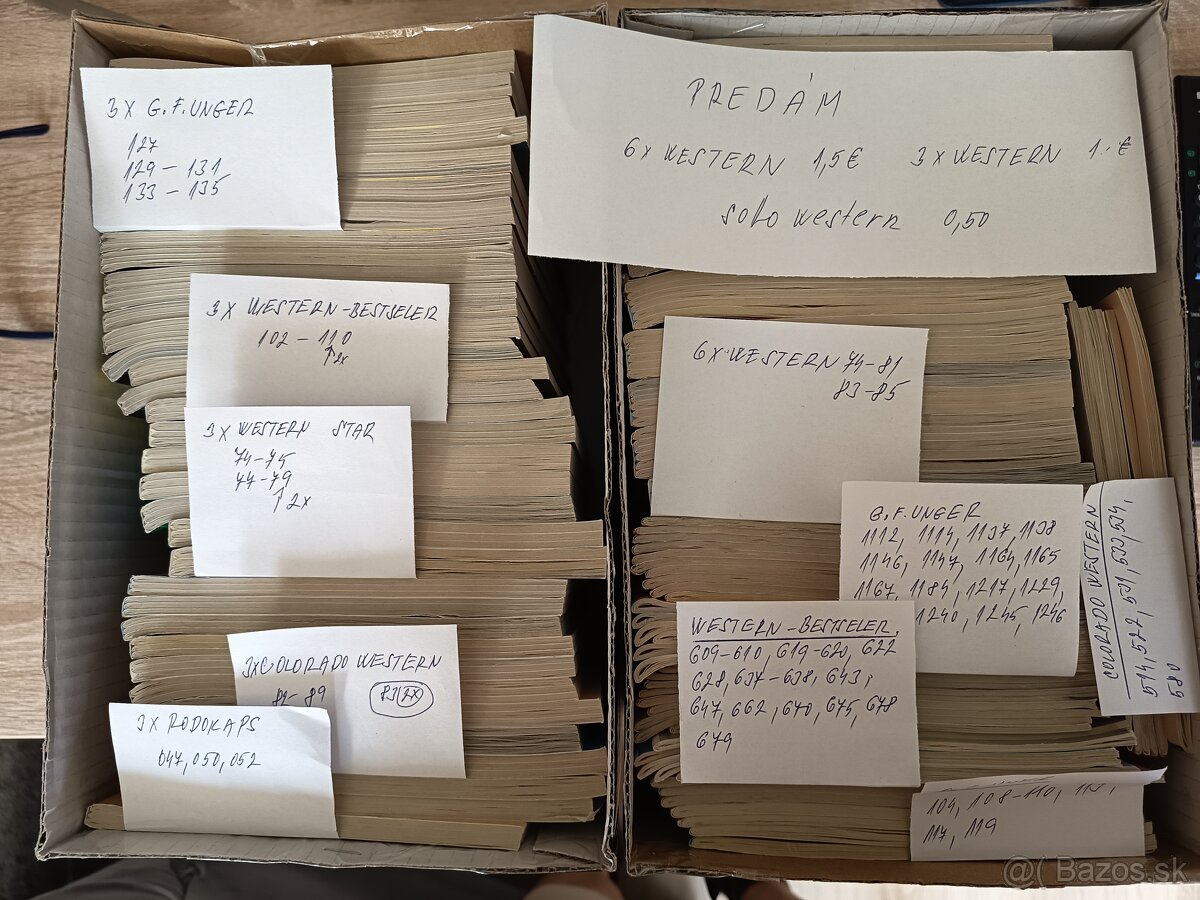 3 X G. F. UNGER
127
129 - 131
133 - 135
3 X WESTERN-BESTSELER
102 - 110
↑2x
3 X WESTERN STAR
74-75
77-79
↑2x
3XCOLORADO WESTERN
82-89 83(2X)
3X RODOKAPS
047, 050, 052
PREDÁM
6x WESTERN 1,5€ 3 X WESTERN 1.- €
sólo western 0,50
6X WESTERN 74-81
83-85
G. F. UNGER
1112, 1114, 1137, 1138
1146, 1147, 1164, 1165
1167, 1184, 1217, 1229,
1240, 1245, 1246
COLORADO WESTERN
514, 522, 531, 533, 534,
580
WESTERN-BESTSELER,
609-610, 619-620, 622
628, 637-638, 643,
647, 662, 670, 675, 678
679
104, 108-110, 113,
117, 119
@( Bazos.sk